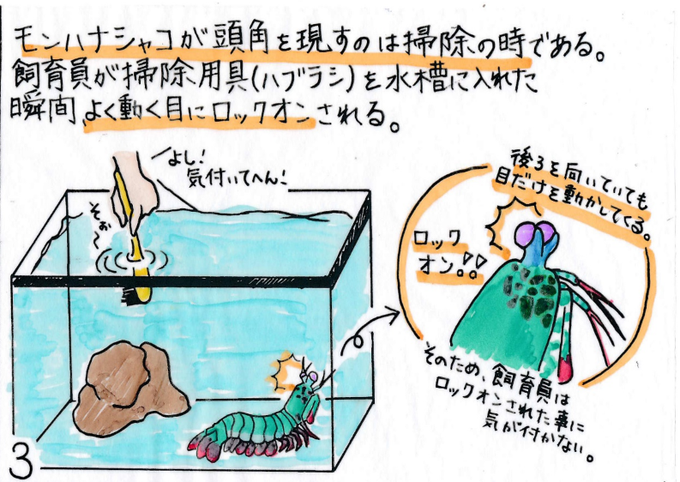 モンハナシャコが頭角を現すのは掃除の時である。
飼育員が掃除用具(ハブラシ)を水槽に入れた
瞬間、よく動く目にロックオンされる。
よし!
気付いてへん!
そお〜
後ろを向いていても
目だけを動かしてくる。
ロック
オン!!
そのため、飼育員は
ロックオンされた事に
気が付かない。
3